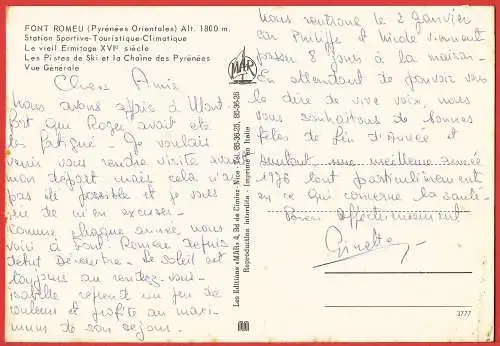 FONT ROMEU (Pyrénées Orientales) Alt. 1800 m.
Station Sportive-Touristique-Climatique
Le vieil Ermitage XVIe siècle
Les Pistes de Ski et la Chaîne des Pyrénées
Vue Générale
Chers Amis
Nous avons appris à Mont
fort que Roger avait été
très fatigué. Je voulais
venir vous rendre visite avant
mon départ mais cela n'a
pas été possible et je vous
prie de m'en excuser.
Comme chaque année, nous
voici à Font-Romeu depuis
début Décembre. Le soleil est
toujours au rendez-vous.
Isabelle reprend un peu de
couleurs et profite au maxi-
mum de son séjour.
MAR
Les Editions «MAR» 4, Bd de Cimiez Nice Tél. 85-36-25, 85-36-26
Reproduction interdite - Imprimé en Italie
Nous rentrons le 2 Janvier
car Philippe et Nicole viennent
passer 8 jours à la maison.
En attendant de pouvoir vous
le dire de vive voix, nous
vous souhaitons de bonnes
fêtes de fin d'Année et
surtout une meilleure année
1976 tout particulièrement
en ce qui concerne la santé.
Bien affectueusement
Ginette
3777